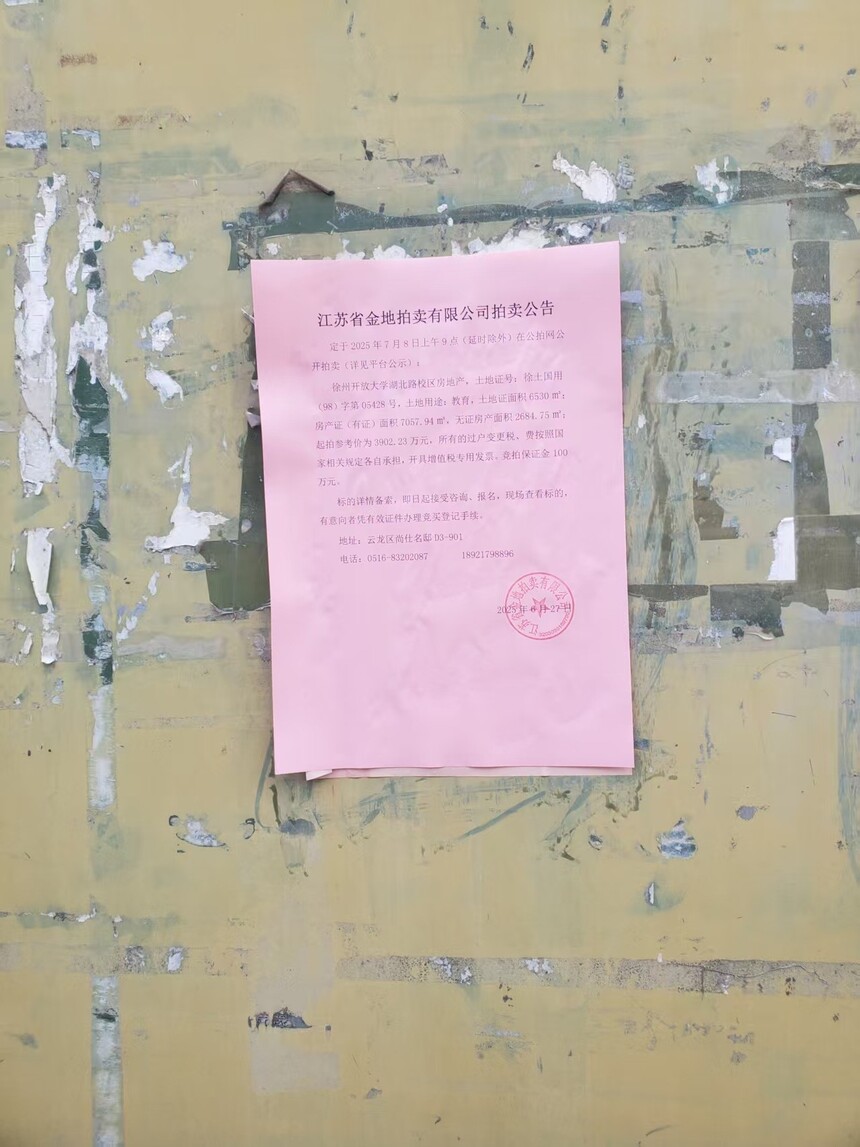 江苏省金地拍卖有限公司拍卖公告
定于 2025 年 7 月 8 日上午 9 点（延时除外）在公拍网公
开拍卖（详见平台公示）：
徐州开放大学湖北路校区房地产，土地证号：徐土国用
（98）字第 05428 号，土地用途：教育，土地证面积 6530 ㎡；
房产证（有证）面积 7057.94 ㎡，无证房产面积 2684.75 ㎡；
起拍参考价为 3902.23 万元，所有的过户变更税、费按照国
家相关规定各自承担，开具增值税专用发票。竞拍保证金 100
万元。
标的详情备索，即日起接受咨询、报名，现场查看标的，
有意向者凭有效证件办理竞买登记手续。
地址：云龙区尚仕名邸 D3-901
电话：0516-83202087 18921798896
2025 年 6 月 27 日
江苏省金地拍卖有限公司